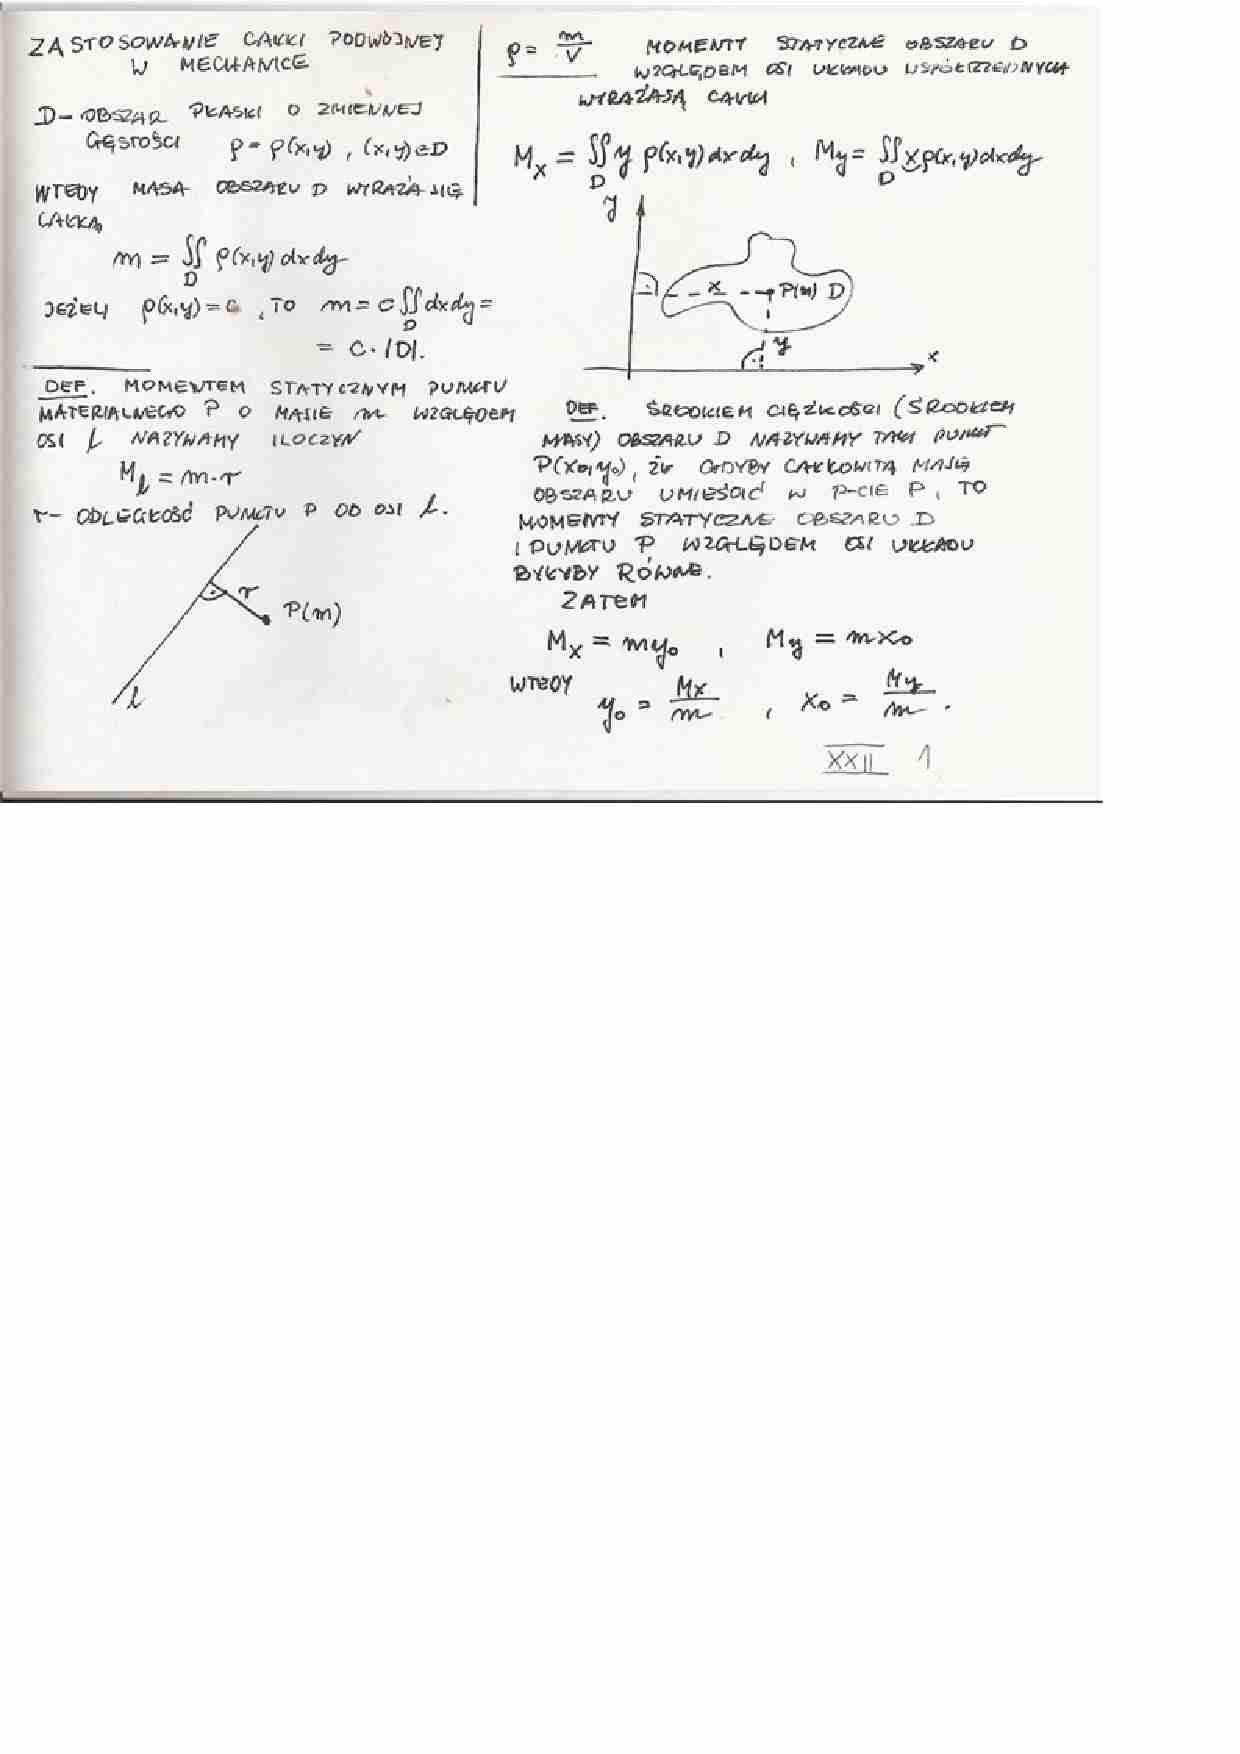 ZASTOSOWANIE CAŁKI PODWÓJNEJ
W MECHANICE
D - OBSZAR PŁASKI O ZMIENNEJ
GĘSTOŚCI ρ = ρ(x,y) , (x,y)∈D
WTEDY MASA OBSZARU D WYRAŻA SIĘ
CAŁKĄ
m = ∬ ρ(x,y) dxdy
D
JEŻELI ρ(x,y) = c , TO m = c ∬ dxdy =
D
= c · |D|.
DEF. MOMENTEM STATYCZNYM PUNKTU
MATERIALNEGO P O MASIE m WZGLĘDEM
OSI l NAZYWAMY ILOCZYN
M_l = m·r
r - ODLEGŁOŚĆ PUNKTU P OD OSI l.
r
P(m)
l
ρ = m/V
MOMENTY STATYCZNE OBSZARU D
WZGLĘDEM OSI UKŁADU WSPÓŁRZĘDNYCH
WYRAŻAJĄ CAŁKI
M_x = ∬ y ρ(x,y) dxdy , M_y = ∬ x ρ(x,y) dxdy
D D
y
x P(m) D
y
x
DEF. ŚRODKIEM CIĘŻKOŚCI (ŚRODKIEM
MASY) OBSZARU D NAZYWAMY TAKI PUNKT
P(x₀,y₀), ŻE GDYBY CAŁKOWITĄ MASĘ
OBSZARU UMIEŚCIĆ W P-CIE P, TO
MOMENTY STATYCZNE OBSZARU D
I PUNKTU P WZGLĘDEM OSI UKŁADU
BYŁYBY RÓWNE.
ZATEM
M_x = my₀ , M_y = mx₀
WTEDY y₀ = M_x/m , x₀ = M_y/m .
XXII 1